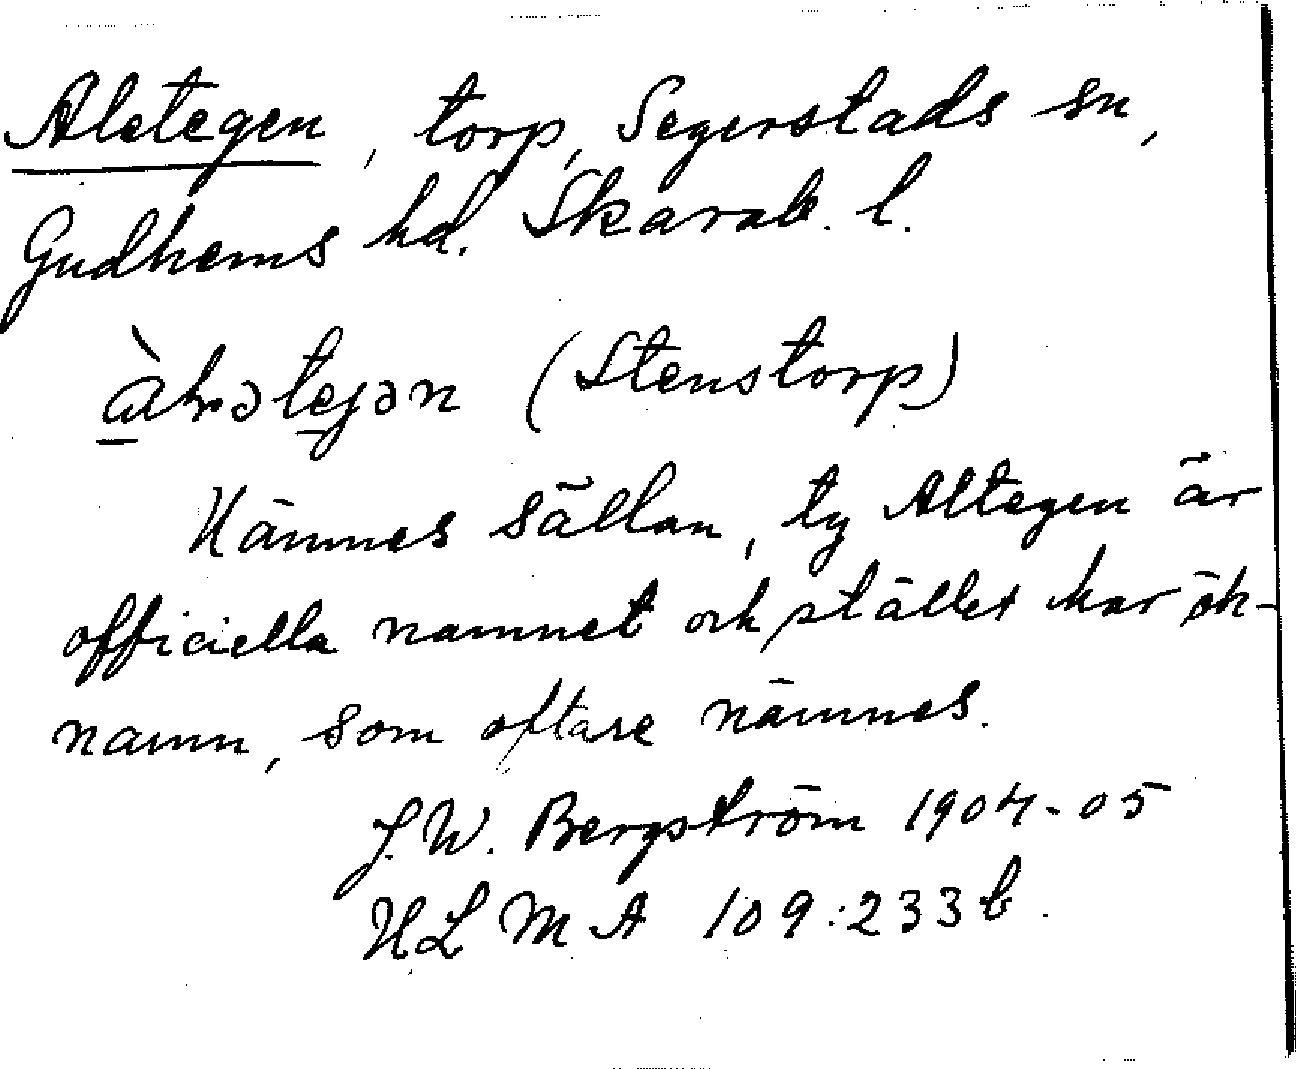 Aletegen, torp, Segerstads sn,
Gudhems hd. Skarab. l.
(Stenstorp)
Nämnes sällan, ty Altegen är
officiella namnet och stället har ök-
namn, som oftare nämnes.
J. W. Bergström 1904-05
ULMA 109:233 b.